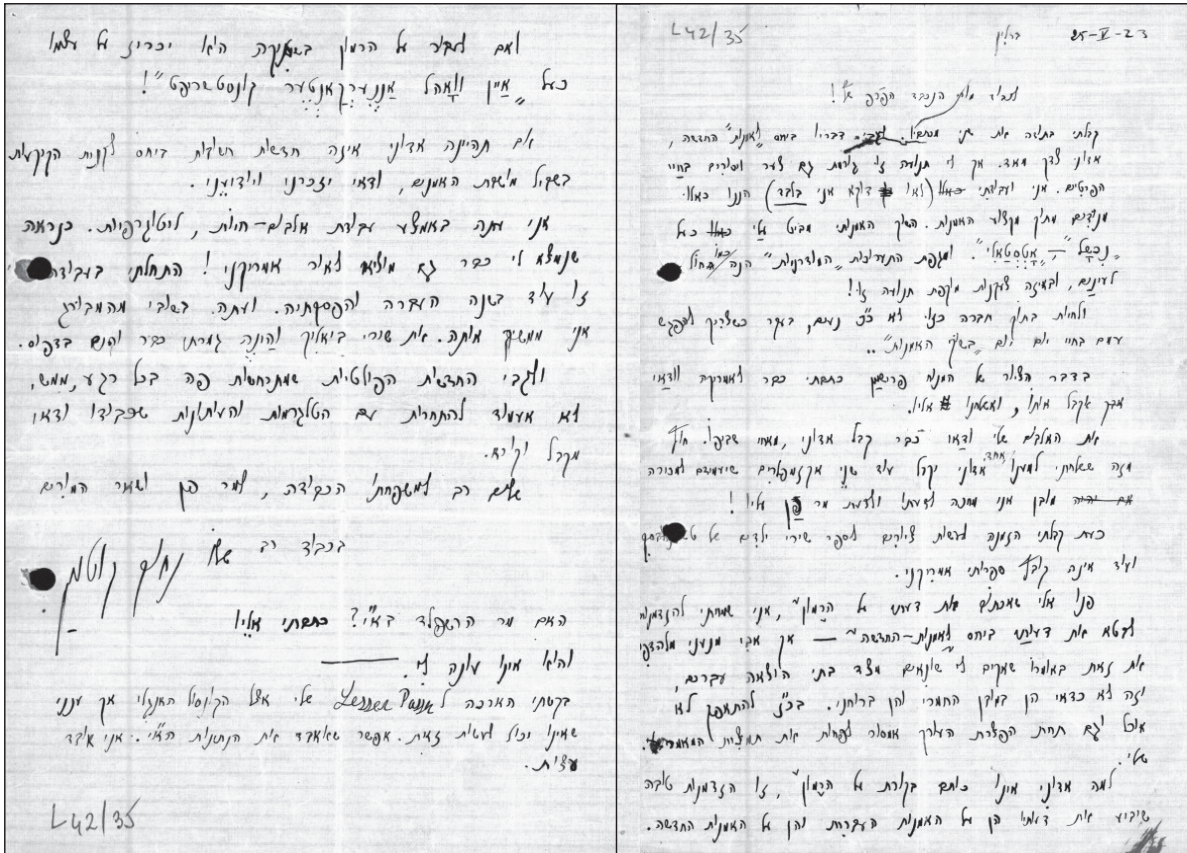 L42/35 ברלין 25-V-23
לכבוד מר הנכבד הפרפ' ש"!
קבלתי בתודה את שני מכתביו. דבריו ביחס "לאמנות" החדשה,
אדוני צדק מאד. אך לי תנועה זו גורמת גם צער ויסורים בחיי
הפרטים. אני ועבודתי (לאו דוקא אני בלבד) הננו כאלו
מנודים מתוך מקצוע האמנות. השוק האמנותי מביט עלי כעל
"נכשל" – "אטסטאלי". ומגפת התערוכות "המודרניות" הנה כמו חול
לעינים, ובמידה צועקנות תוקפת תנועה זו!
ולחיות בתוך חברה כזו לא כ"כ נעים, בעקר כשצריך להפגש
עמם בחיי יום יום "בשוק האמנות"..
בדבר הציור של המנוח פרישמן כתבתי כבר לאמריקה וודאי
אקבל אותו, ואשלחנו אליו.
את האלבום שלי ודאי כבר קבל אדוני, מאחי שביפו. חוץ
מזה ששלחתי למענו אחד, אדוני יקבל עוד שני אקזמפלרים שיעמדם למכירה
מובן אני מחכה לדעתו ולדעת מר פן עליו!
כעת קבלתי הזמנה לעשות ציורים לספר שירי ילדים של
ועוד איזה קובץ ספרותי אמריקני.
פנו אלי שאכתוב את דעתי על "הרמון", אני שמחתי להזדמנות
לבטא את דעותי ביחס לאמנות-החדשה – אך אבי מנעני מלהדפיס
את זאת באומרו שאקים לי שונאים מצד בתי הוצאה עברים,
וזה לא כדאי הן במובן החמרי והן ברוחני. בכ"ז להתאפק לא
אוכל וגם תחת הפצרת העורך אמסור לפחות את תמצית המאמר
שלי.
למה אדוני אינו כותב בקורת על "הרמון", זו הזדמנות טובה
שיביע את דעתו הן על האמנות העברית והן על האמנות החדשה.
ואם לעבור על הרמון בשתיקה הוא יכריז על עצמו
כעל "אַיין וואָהל אַננערקאַנטער קונסטשריפט"!
אם תהיינה אדוני איזה חדשות חשובות ביחס לקנית הקרקעות
בשביל מושבת האמנים, ודאי יזכרני ויודיעני.
אני עתה באמצע עבודת אלבום-חיות, ליטוגרפיות. כנראה
שנמצא לי כבר גם מוציא לאור אמריקני! התחלתי בעבודה
זו עוד בשנה העברה והפסקתיה. ועתה, בשובי מהמבורג
אני ממשיך אותה. את שירי ביאליק והיונה גמרתי כבר והנם בדפוס.
ולגבי החדשות הפוליטיות שמתרחשות פה בכל רגע, ממש,
לא אעמוד להתחרות עם הטלגרמות והעיתונות שכבודו ודאי
מקבל וקורא.
שלום רב למשפחתו הכבודה, למר פן ושאר המורים
בכבוד רב שלו נחום גוטמן
האם מר הרשפלד בא"י? כתבתי אליו
והוא אינו עונה לי
בקשתי הארכה ל Lessez Passe שלי אצל הקונסול האנגלי אך ענני
שאינו יכול לעשות זאת. אפשר שאאבד את הנתינות הא"י. אני אובד
עצות.
L42/35